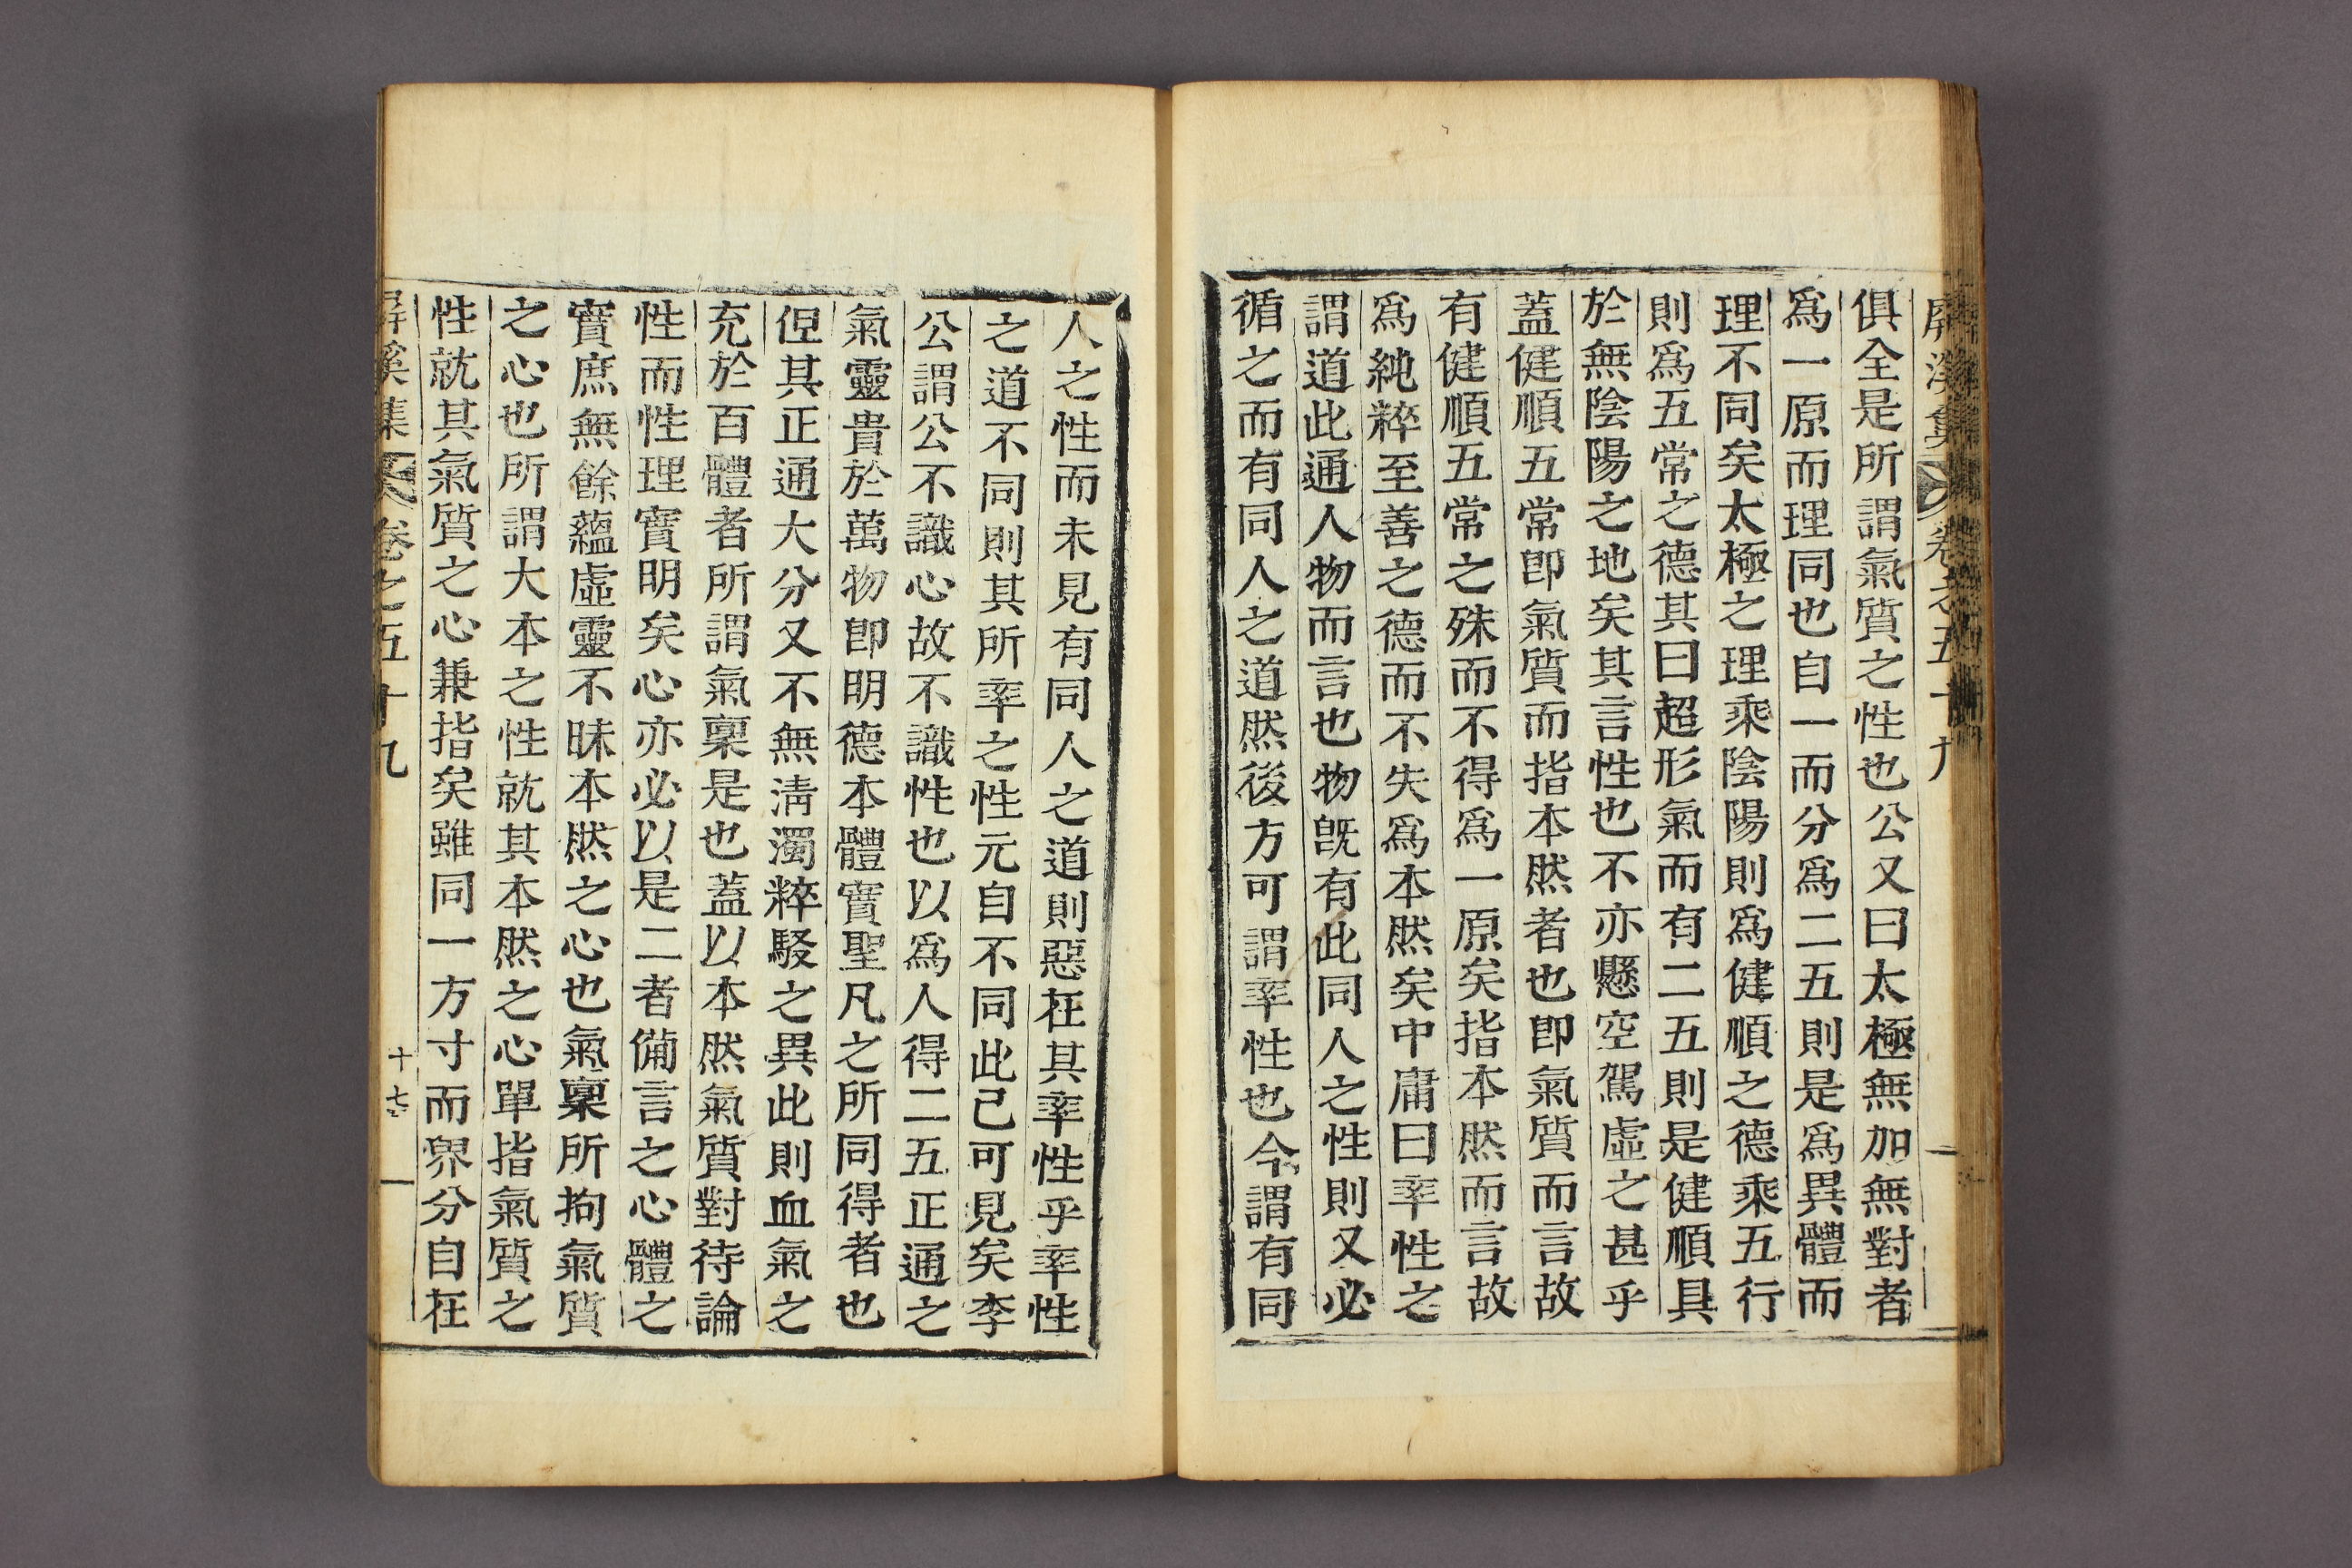 屛溪集 卷之五十九
俱全是所謂氣質之性也公又曰太極無加無對者
爲一原而理同也自一而分爲二五則是爲異體而
理不同矣太極之理乘陰陽則爲健順之德乘五行
則爲五常之德其曰超形氣而有二五則是健順具
於無陰陽之地矣其言性也不亦懸空駕虛之甚乎
蓋健順五常卽氣質而指本然者也卽氣質而言故
有健順五常之殊而不得爲一原矣指本然而言故
爲純粹至善之德而不失爲本然矣中庸曰率性之
謂道此通人物而言也物旣有此同人之性則又必
循之而有同人之道然後方可謂率性也今謂有同
人之性而未見有同人之道則惡在其率性乎率性
之道不同則其所率之性元自不同此已可見矣李
公謂公不識心故不識性也以爲人得二五正通之
氣靈貴於萬物卽明德本體實聖凡之所同得者也
但其正通大分又不無淸濁粹駁之異此則血氣之
充於百體者所謂氣稟是也蓋以本然氣質對待論
性而性理實明矣心亦必以是二者備言之心體之
實庶無餘蘊虛靈不昧本然之心也氣稟所拘氣質
之心也所謂大本之性就其本然之心單指氣質之
性就其氣質之心兼指矣雖同一方寸而界分自在
屛溪集 卷之五十九 十七